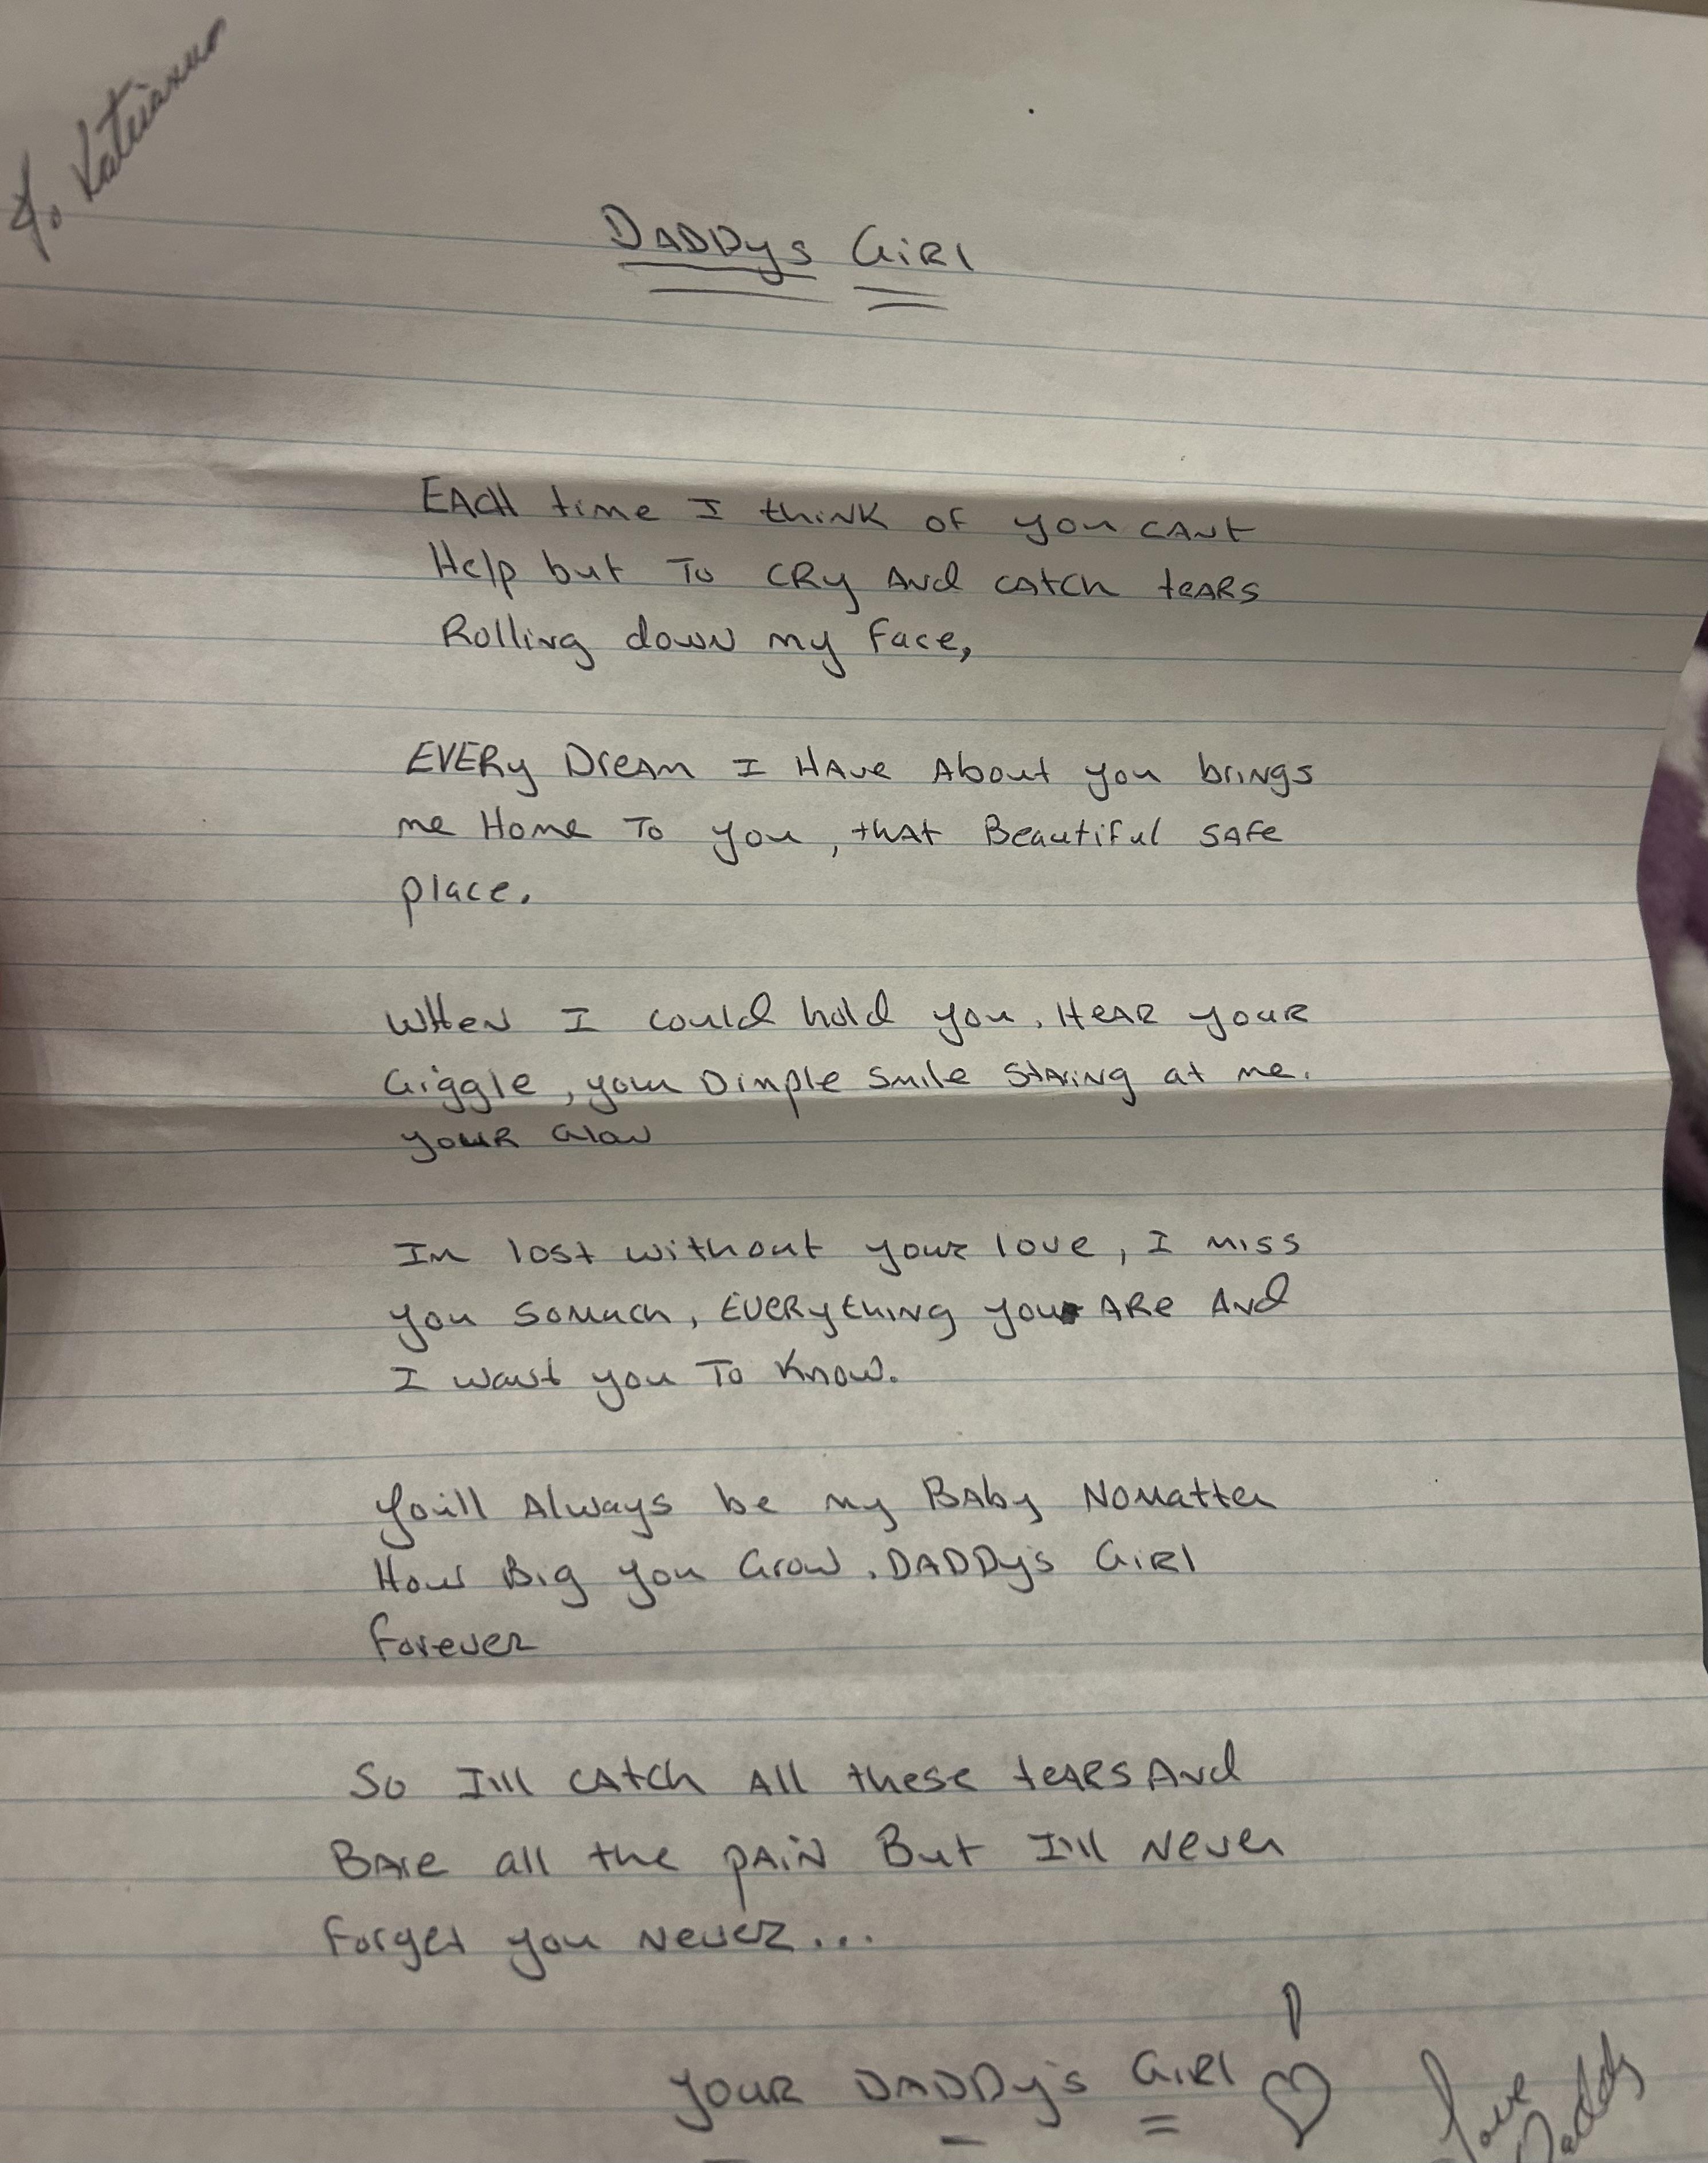 To
DADDys GiRl
EACH time I thiNK of you CANt
Help but To CRy ANd CAtch teARs
Rolling down my face,
EVERy DreAm I HAve About you briNgs
me Home To you, thAt Beautiful SAfe
place.
WHeN I could hold you. HeAR youR
Giggle, your Dimple Smile StAring at me.
youR Glow
Im lost without your love, I miss
you somuch, EVERythiNg you ARe ANd
I waNt you To Know.
You'll Always be my BAby NoMatter
How Big you Grow. DADDy's GiRl
forever
So I'll CAtch All these teARs ANd
BAre all the pAiN But I'll Never
forget you Never...
youR DADDy's GiRl !
Love
Daddy